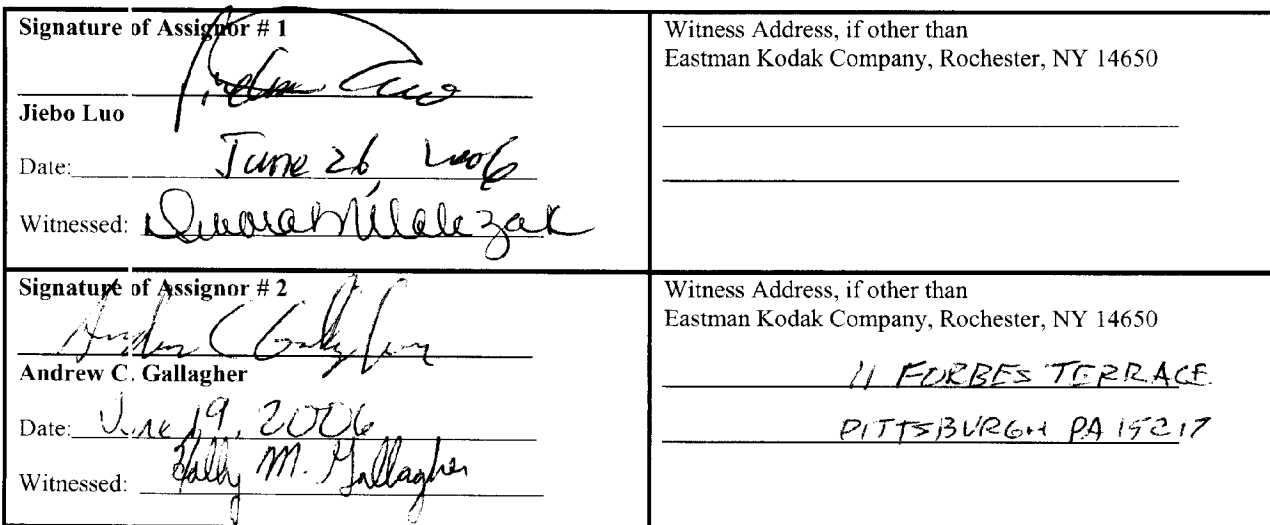 Signature of Assignor # 1
Jiebo Luo
Date: June 26 2006
Witnessed:
Witness Address, if other than
Eastman Kodak Company, Rochester, NY 14650
Signature of Assignor # 2
Andrew C Gallagher
Andrew C. Gallagher
Date: June 19, 2006
Witnessed: Holly M. Gallagher
Witness Address, if other than
Eastman Kodak Company, Rochester, NY 14650
11 FORBES TERRACE
PITTSBURGH PA 15217